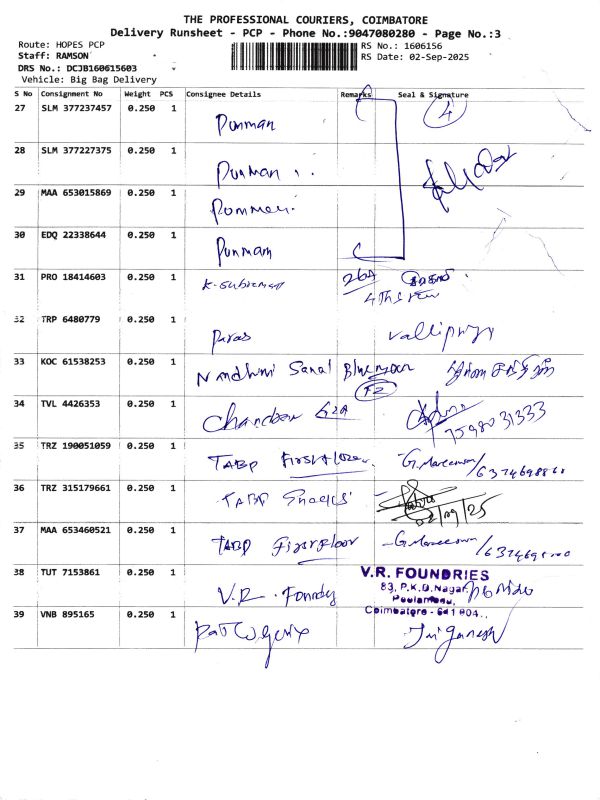 THE PROFESSIONAL COURIERS, COIMBATORE
Delivery Runsheet - PCP - Phone No.:9047080280 - Page No.:3
Route: HOPES PCP RS No.: 1606156
Staff: RAMSON RS Date: 02-Sep-2025
DRS No.: DCJB160615603
Vehicle: Big Bag Delivery
S No Consignment No Weight PCS Consignee Details Remarks Seal & Signature
27 SLM 377237457 0.250 1 Punman 4
28 SLM 377227375 0.250 1 Punman
29 MAA 653015869 0.250 1
30 EDQ 22338644 0.250 1 Punmam
31 PRO 18414603 0.250 1 K. Subreman
32 TRP 6480779 0.250 1 Paras
33 KOC 61538253 0.250 1 Nandhini Sanal
34 TVL 4426353 0.250 1 Chandran
7598031333
35 TRZ 190051059 0.250 1 TABP First Floor
36 TRZ 315179661 0.250 1 TABP Snacks
02/09/25
37 MAA 653460521 0.250 1 TABP First Floor
38 TUT 7153861 0.250 1 V.R. Foundry V.R. FOUNDRIES
83, P.K.D.Nagar,
Peelamedu,
Coimbatore - 641 004.
39 VNB 895165 0.250 1 Jai Ganesh